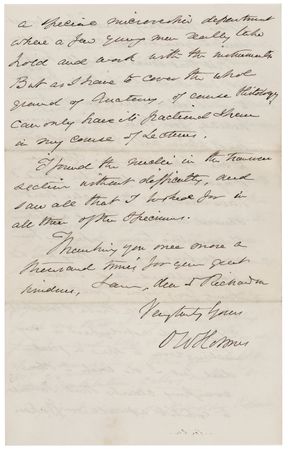 a special microscopic department
where a few young men really take
hold and work with the instruments
But as I have to cover the whole
ground of Anatomy, of course Histology
can only have its fractional share
in my course of Lectures.
I found the nuclei in the transverse
section without difficulty, and
saw all that I looked for in
all three of the specimens.
Thanking you once more a
thousand times for your great
kindness, I am, dear Dr Richardson
Very truly Yours
O W Holmes